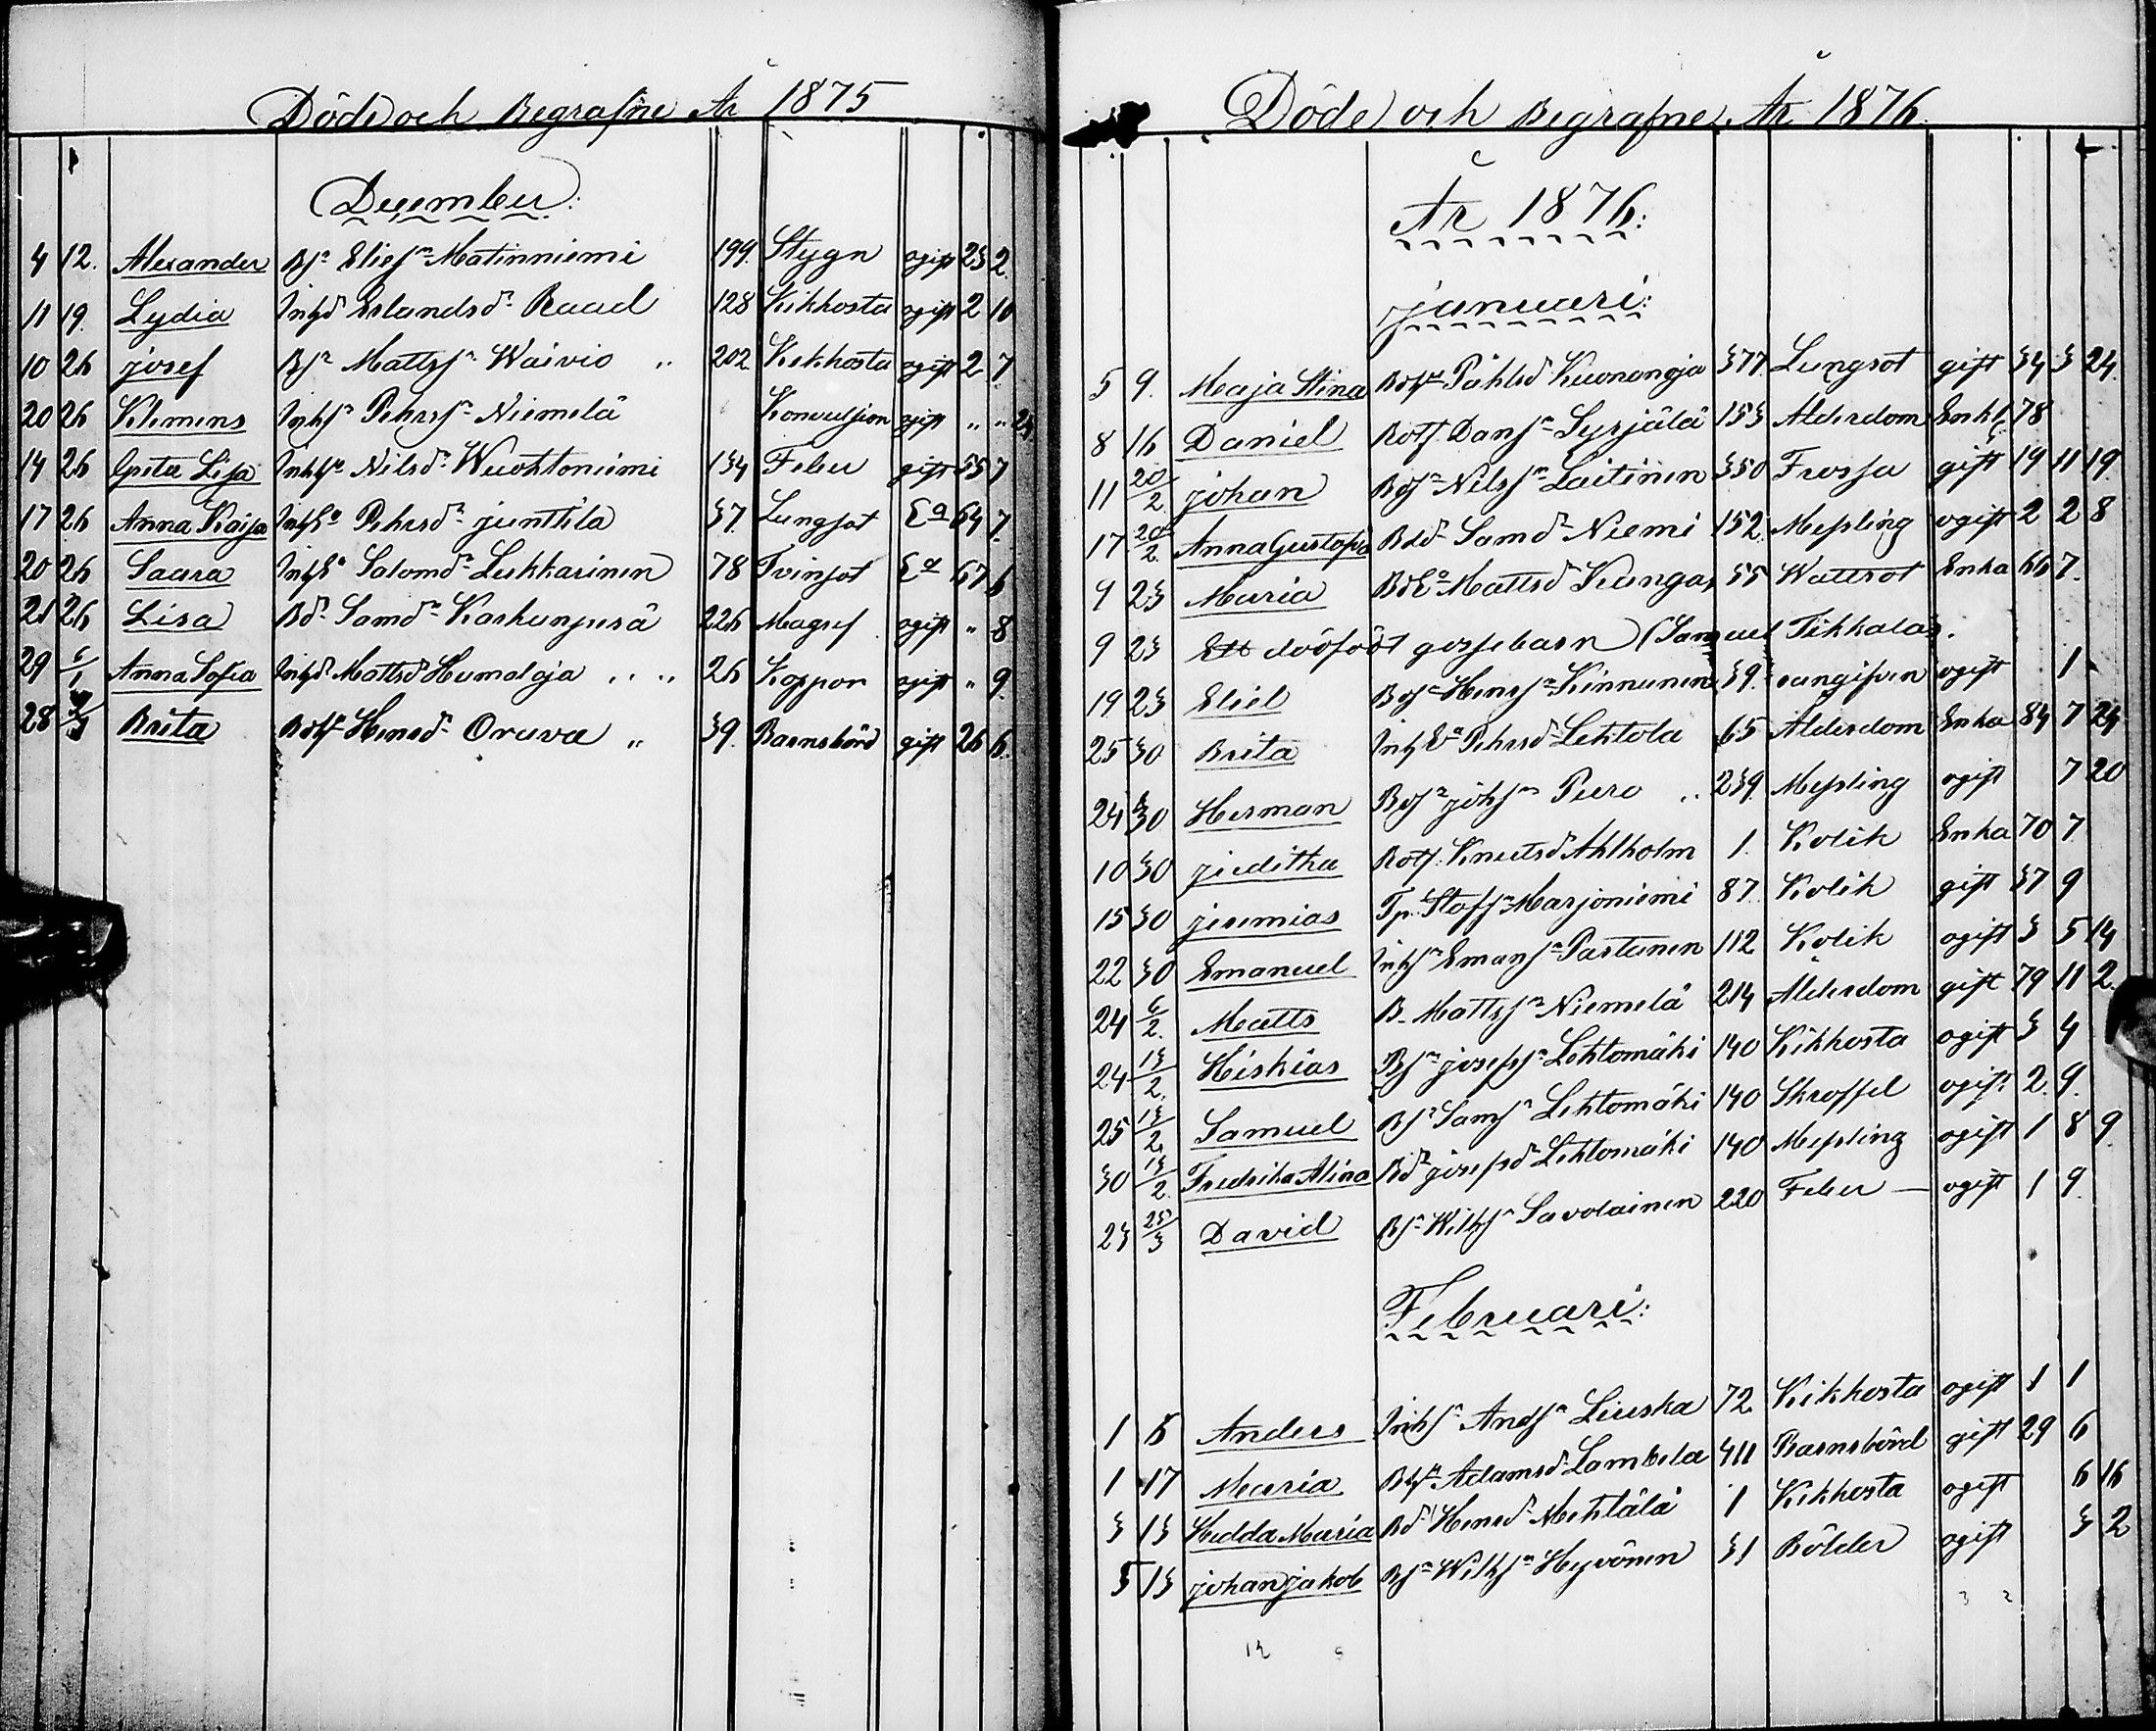 Döde och Begrafne År 1875
December:
4 12. Alexander Bsn Eliessn Matinniemi 199. Stygn ogift 23 2.
11 19. Lydia Inhd Erlandsdr Raad 128 Kikhosta ogift 2 10
10 26 josef Bsn Mattssn Waivio „ 202 Kikhosta ogift 2 7
20 26 Klemens Inhsn Pehrssn Niemelä Konvulsion ogift „ „ 23
14 26 Greta Lisa Nilsdr Wuohtoniemi 134 Feber gift 55 7
17 26 Anna Kaisa InhEa Pehrsdr junttila 37. Lungsot Ea 64 7.
20 26 Saara InhEa Salomdr Leskkarinen 78 Tvinsot Ea 67 6
21 26 Lisa Bdr Samdr Karhunpesä 226 Magref ogift „ 8
29 6/1 Anna Sofia Inhd Mattsd Humaloja „ „ 26 Koppor ogift „ 9.
28 Brita Hinrsdr Orava „ 39. Barnsbörd gift 26 6.
Döde och Begrafne År 1876.
År 1876:
januari:
5 9. Maja Stina Påhlsd Kuonanoja 377. Lungsot gift 34 3 24.
8 16 Daniel Rotf. Danssn Syrjälä 153 Ålderdom Enkl. 78
11 20/2 johan Nilssn Laitinen 350 Frossa gift 19 11 19.
17 20/2. Anna Gustafva Bdd Samd Niemi 152. Messling ogift 2 2 8
9 23 Maria BdEa Mattsd Kangas 55 Wattsot Enka 66 7.
9 23 Ett dödfödt gossebarn (Samuel Tikkalas.
19 23 Eliel Hinrsn Kinnunen 39. oangifven ogift 1
25 30 Brita InhEa Pehrsd Lehtola 65 Ålderdom Enka 84 7 24
24 30 Herman johsn Puro „ 239. Messling ogift 7 20
10 30 juditha Rotf. Knutsd Ahlholm 1. Kolik Enka 70 7.
15 30 jeremias Tp. Stafsn Marjoniemi 87. Kolik gift 37 9
22 30 Emanuel Inhsn Emansn Partanen 112 Kolik ogift 3 5 14
24 6/2. Matts B. Mattssn Niemelä 214 Ålderdom gift 79 11 2.
24 13/2. Hiskias Bsn josefsn Lehtomäki 140 Kikhosta ogift 3 4
25 13/2. Samuel Bsn Samsn Lehtomäki 140 Skroffel ogift 2. 9.
30 13/2. Fredrika Alina Bdr josefsd Lehtomäki 140 Messling ogift 1 8 9.
23 25/3 David Bsn Wilhsn Savolainen 220 Feber — ogift 1 9.
Februari:
1 6 Anders Inhsn Andsn Liuska 72 Kikhosta ogift 1 1
1 17 Maria Adamsd Lambila 411 Barnsbörd gift 29 6
3 13 Hedda Maria Bdr Hinrsd Mehtälä 1 Kikhosta ogift 6 16
5 13 johan jakob Bsn Wilhsn Hyvönen 31 Bölder ogift 3 2